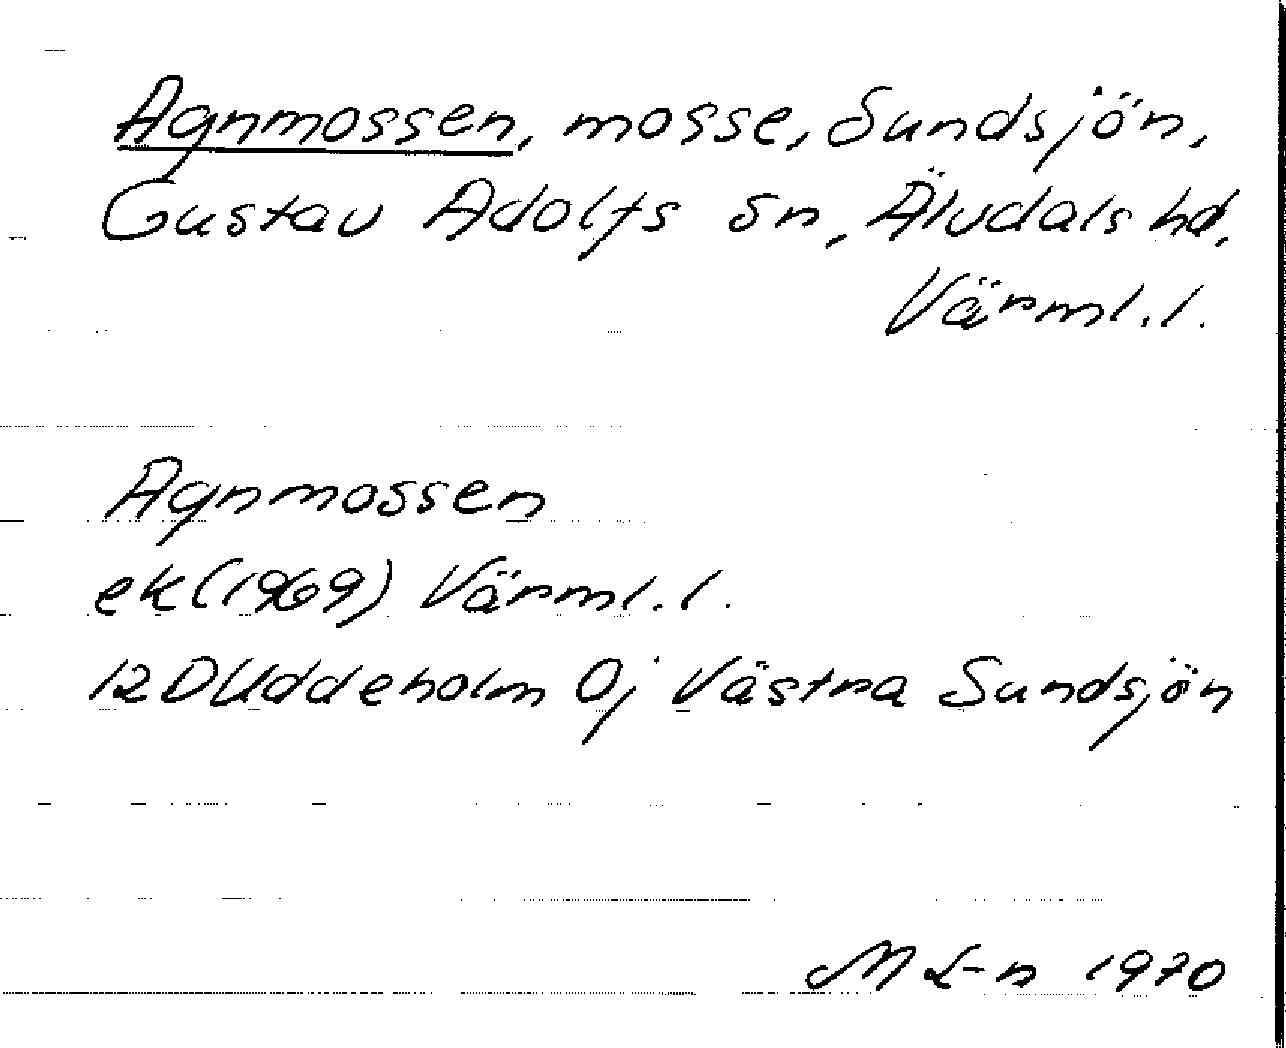 Agnmossen, mosse, Sundsjön,
Gustav Adolfs sn, Älvdals hd,
Värml. l.
Agnmossen
ek (1969) Värml. l.
12D Uddeholm 0j Västra Sundsjön
M L-n 1970